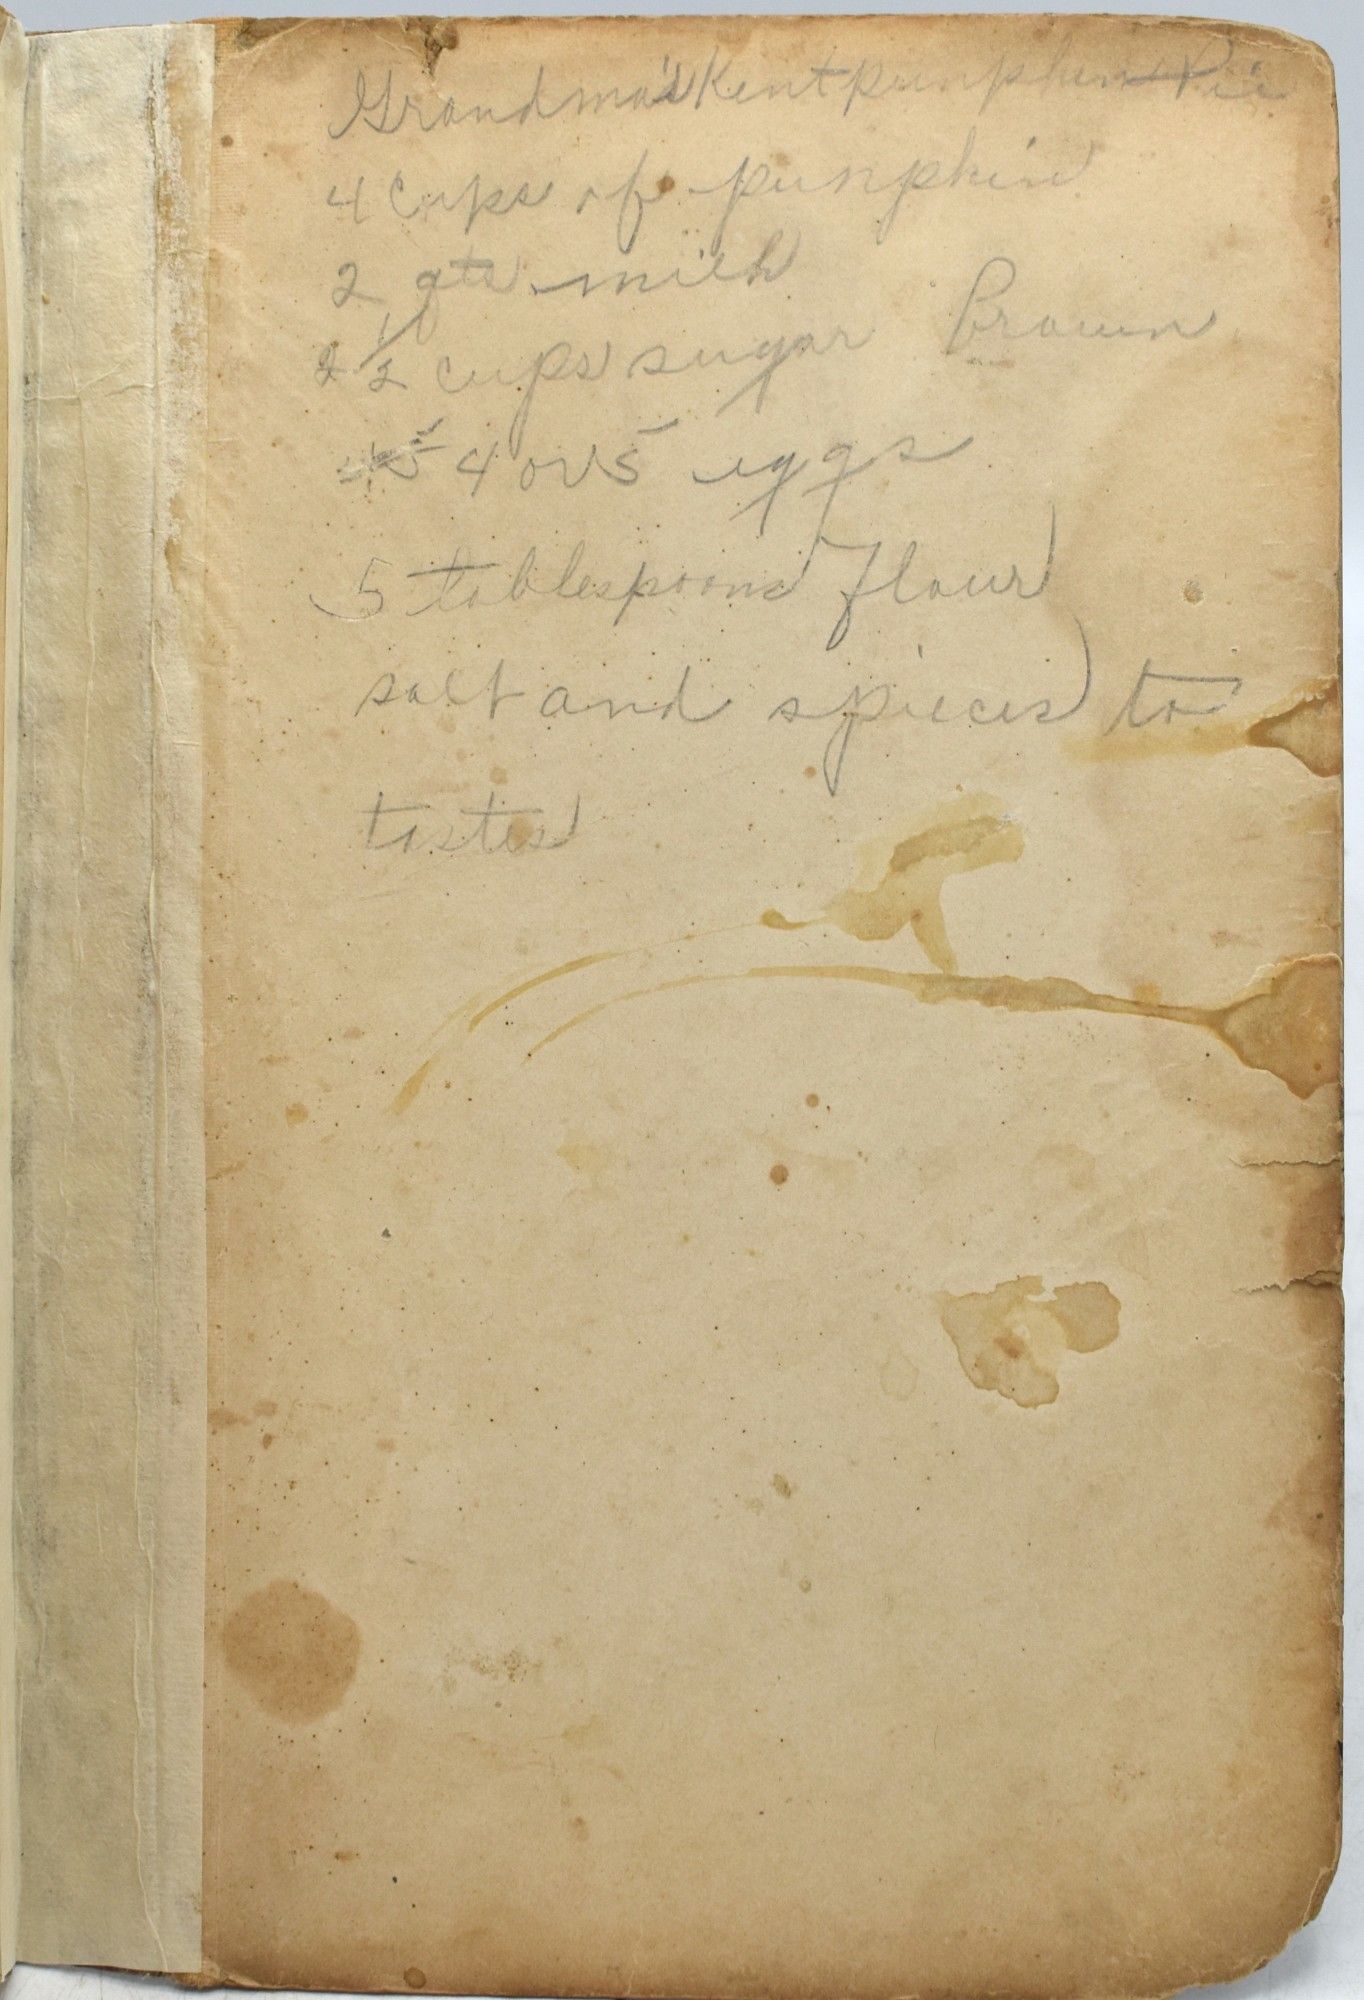 Grandma's Kent punphin Pie
4 cups of punphin
2 qts milk
2 1/2 cups sugar Brown
4 or 5 eggs
5 tablespoons flour
salt and spieces to
tastes